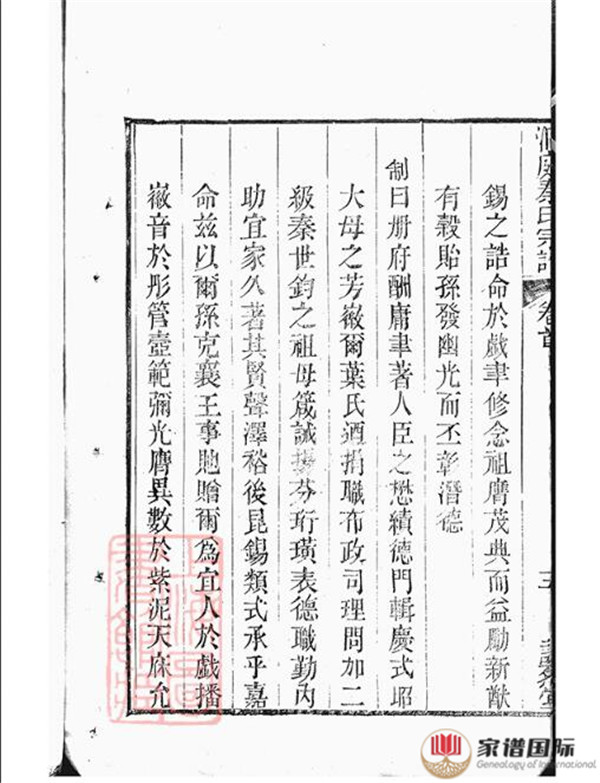 洞庭秦氏宗譜
卷首
三
錫之誥命於戲聿修念祖膺茂典而益勵新猷
有穀貽孫發幽光而丕彰潛德
制曰册府酬庸聿著人臣之懋績德門輯慶式昭
大母之芳徽爾葉氏迺捐職布政司理問加二
級秦世鈞之祖母箴誡揚芬珩璜表德職勤內
助宜家久著其賢聲澤裕後昆錫類式承乎嘉
命茲以爾孫克襄王事貤贈爾爲宜人於戲播
徽音於彤管壼範彌光膺異數於紫泥天庥允
家谱国际
Genealogy of International